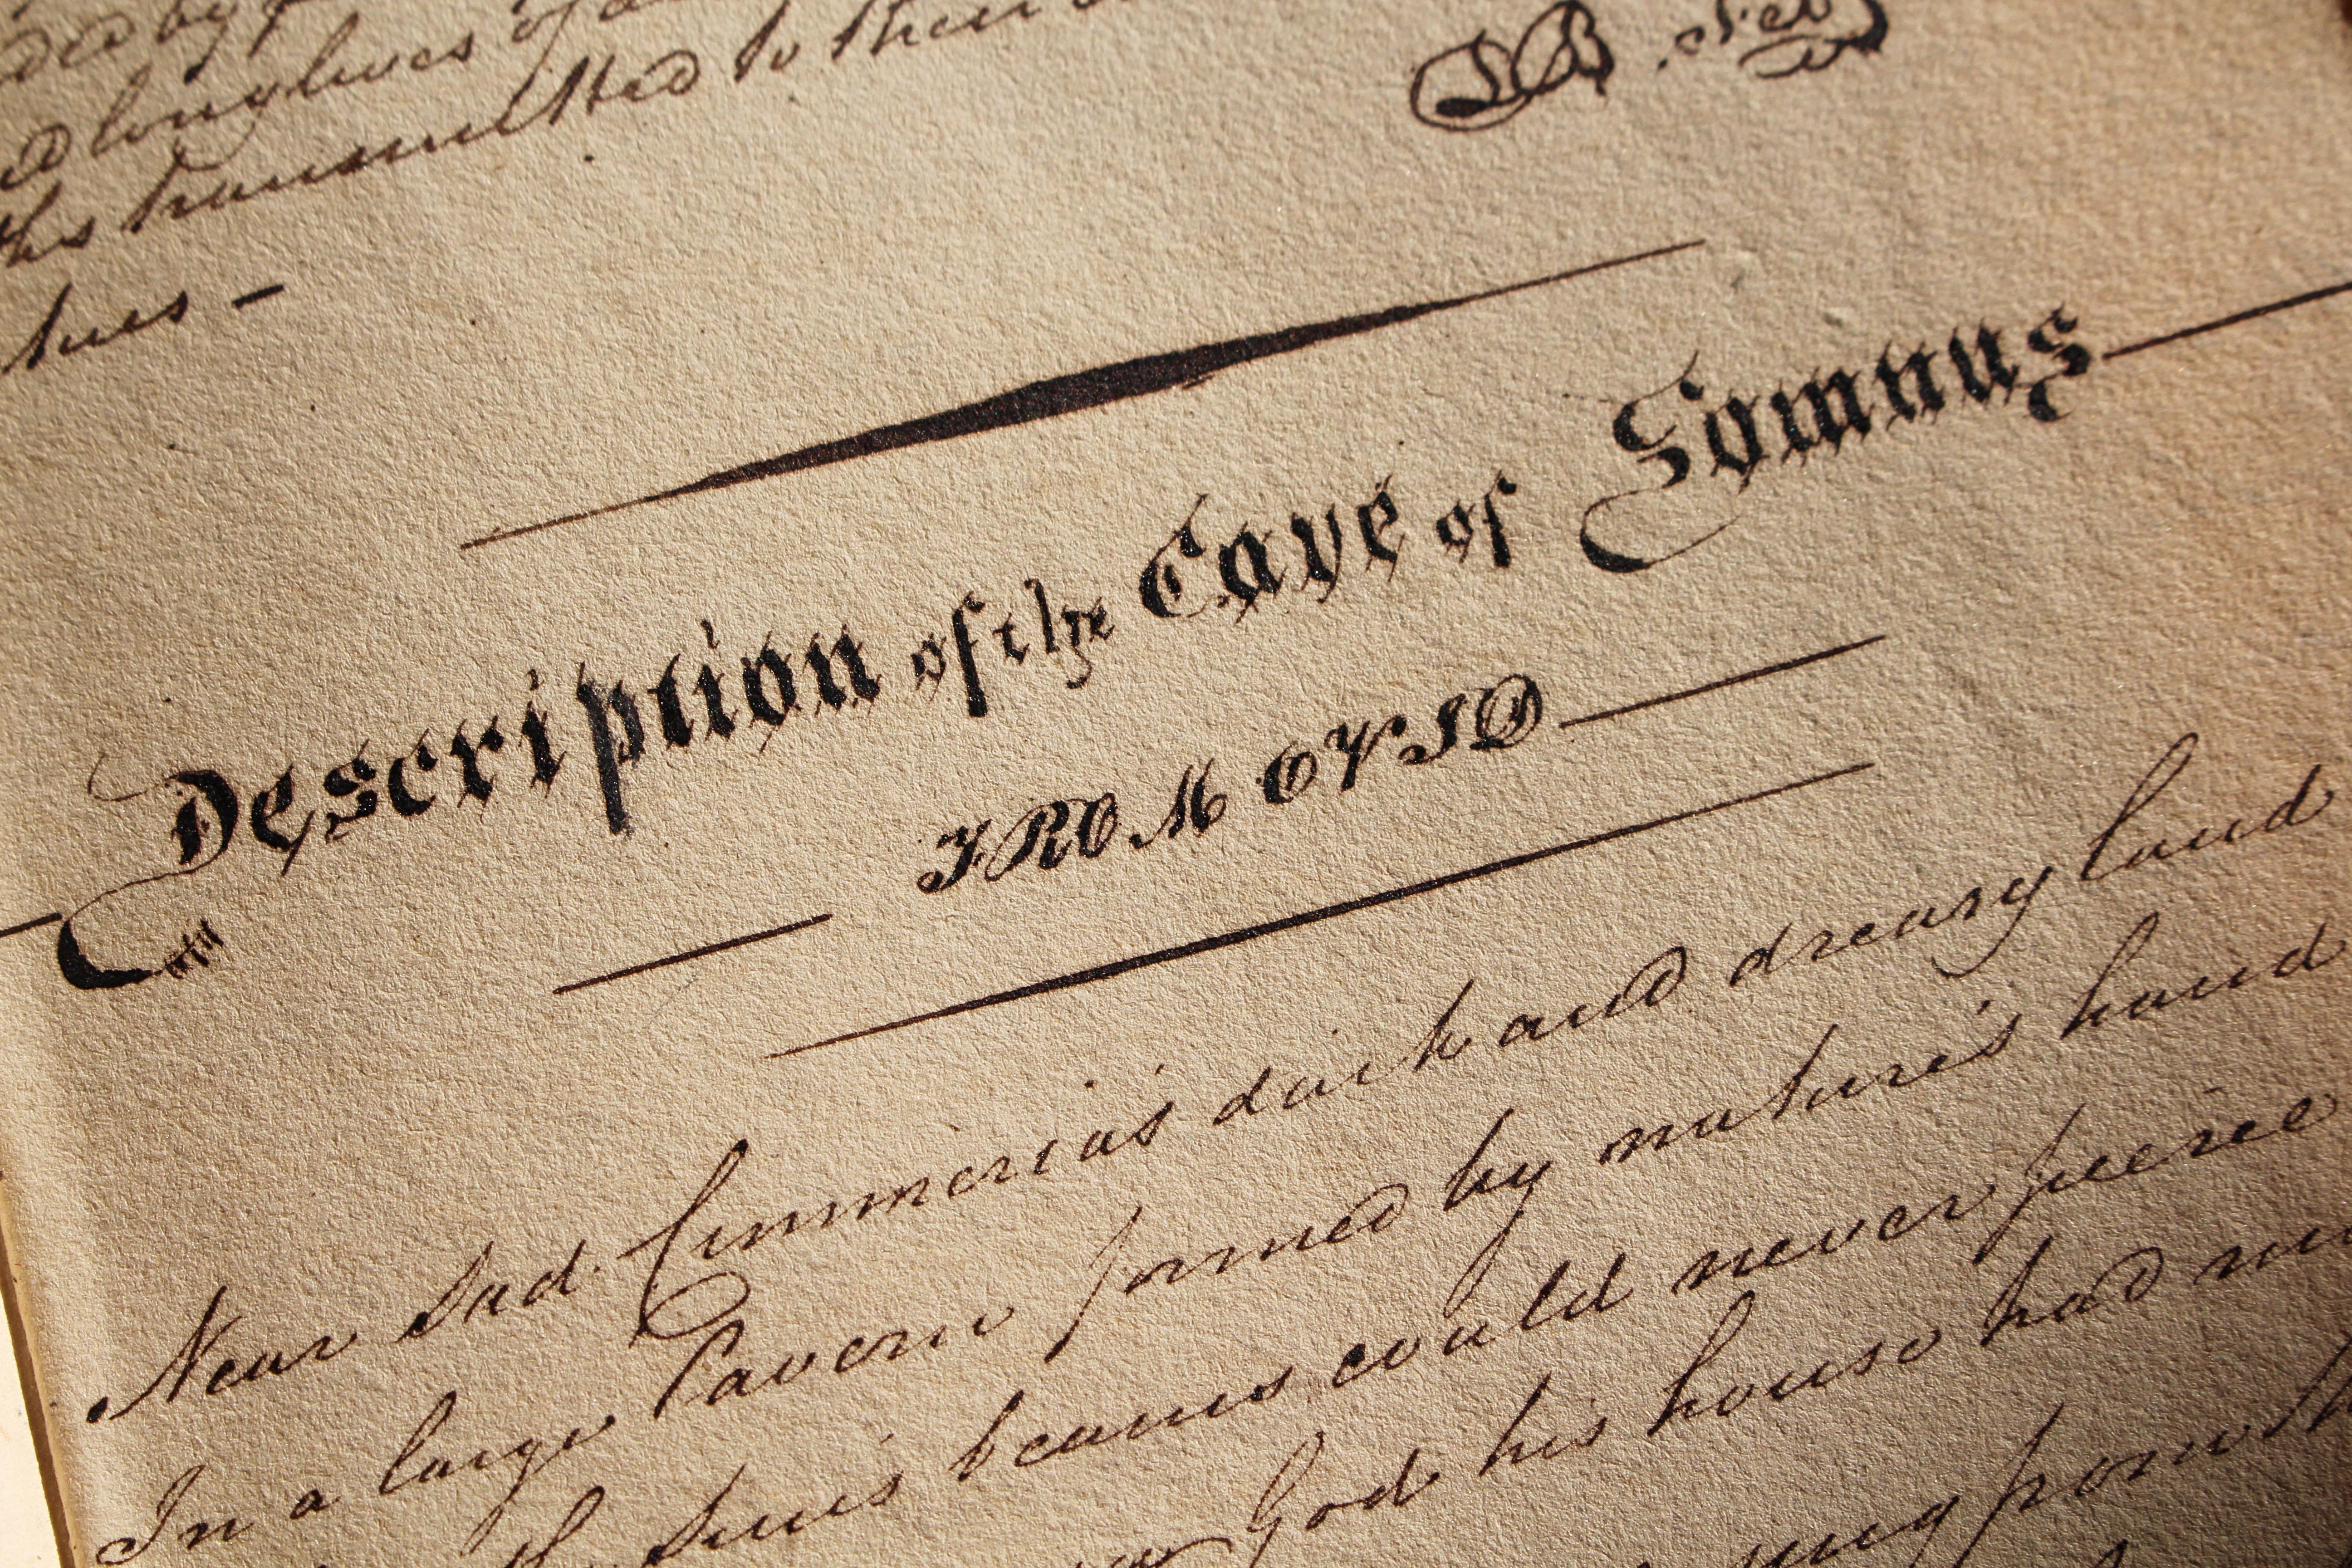 long lives of
this transmitted to their
Description of the Cave of Somnus
FROM OVID
Near sad Cimmeria's dark and dreary land
In a large Cavern formed by nature's hand
sun's beams could never peirce
God his house had